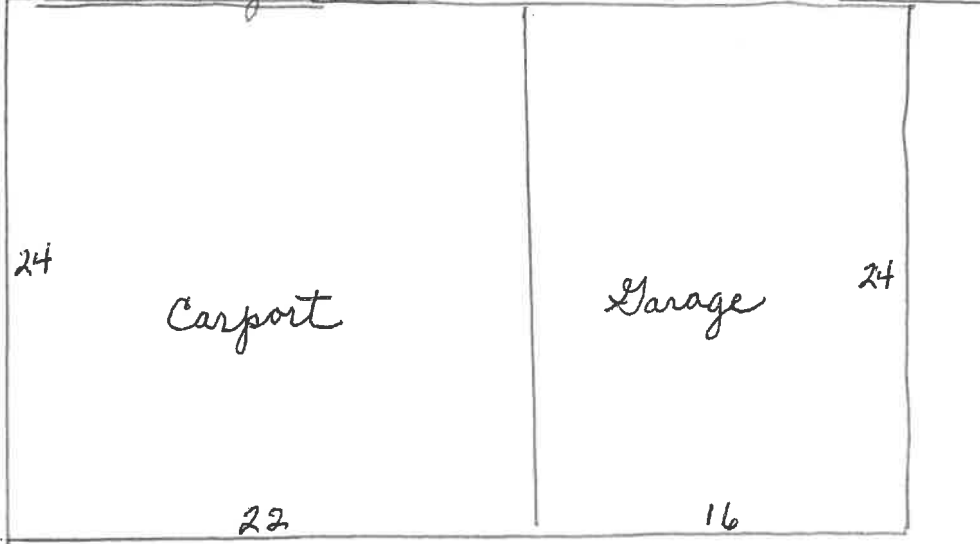 24
24
Carport
Garage
22
16